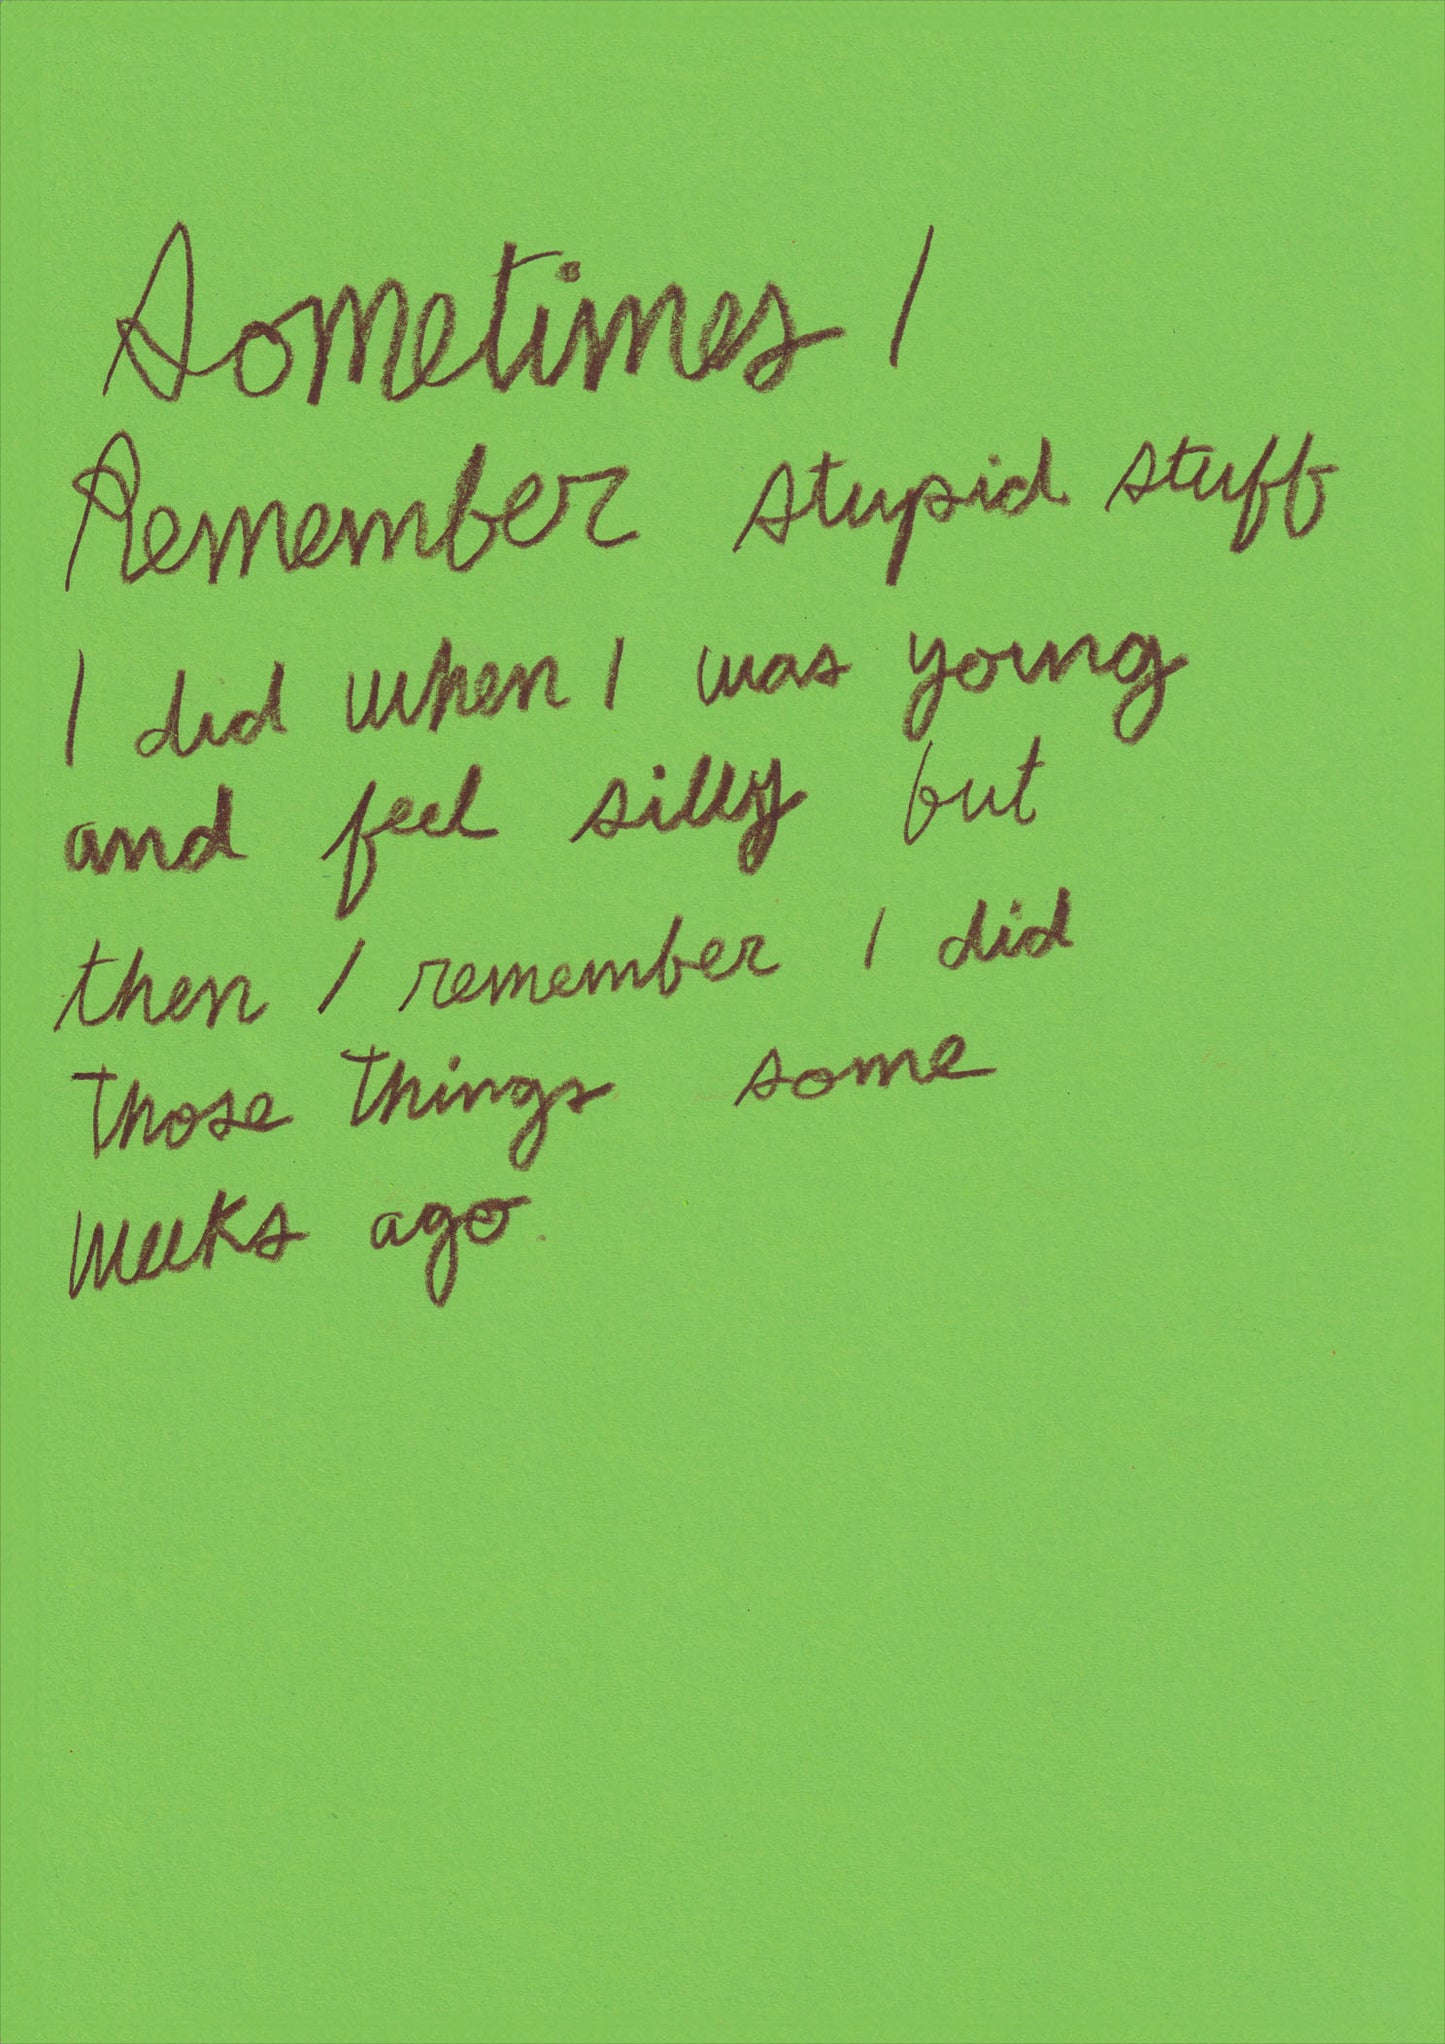 Sometimes I
Remember stupid stuff
I did when I was young
and feel silly but
then I remember I did
those things some
weeks ago.